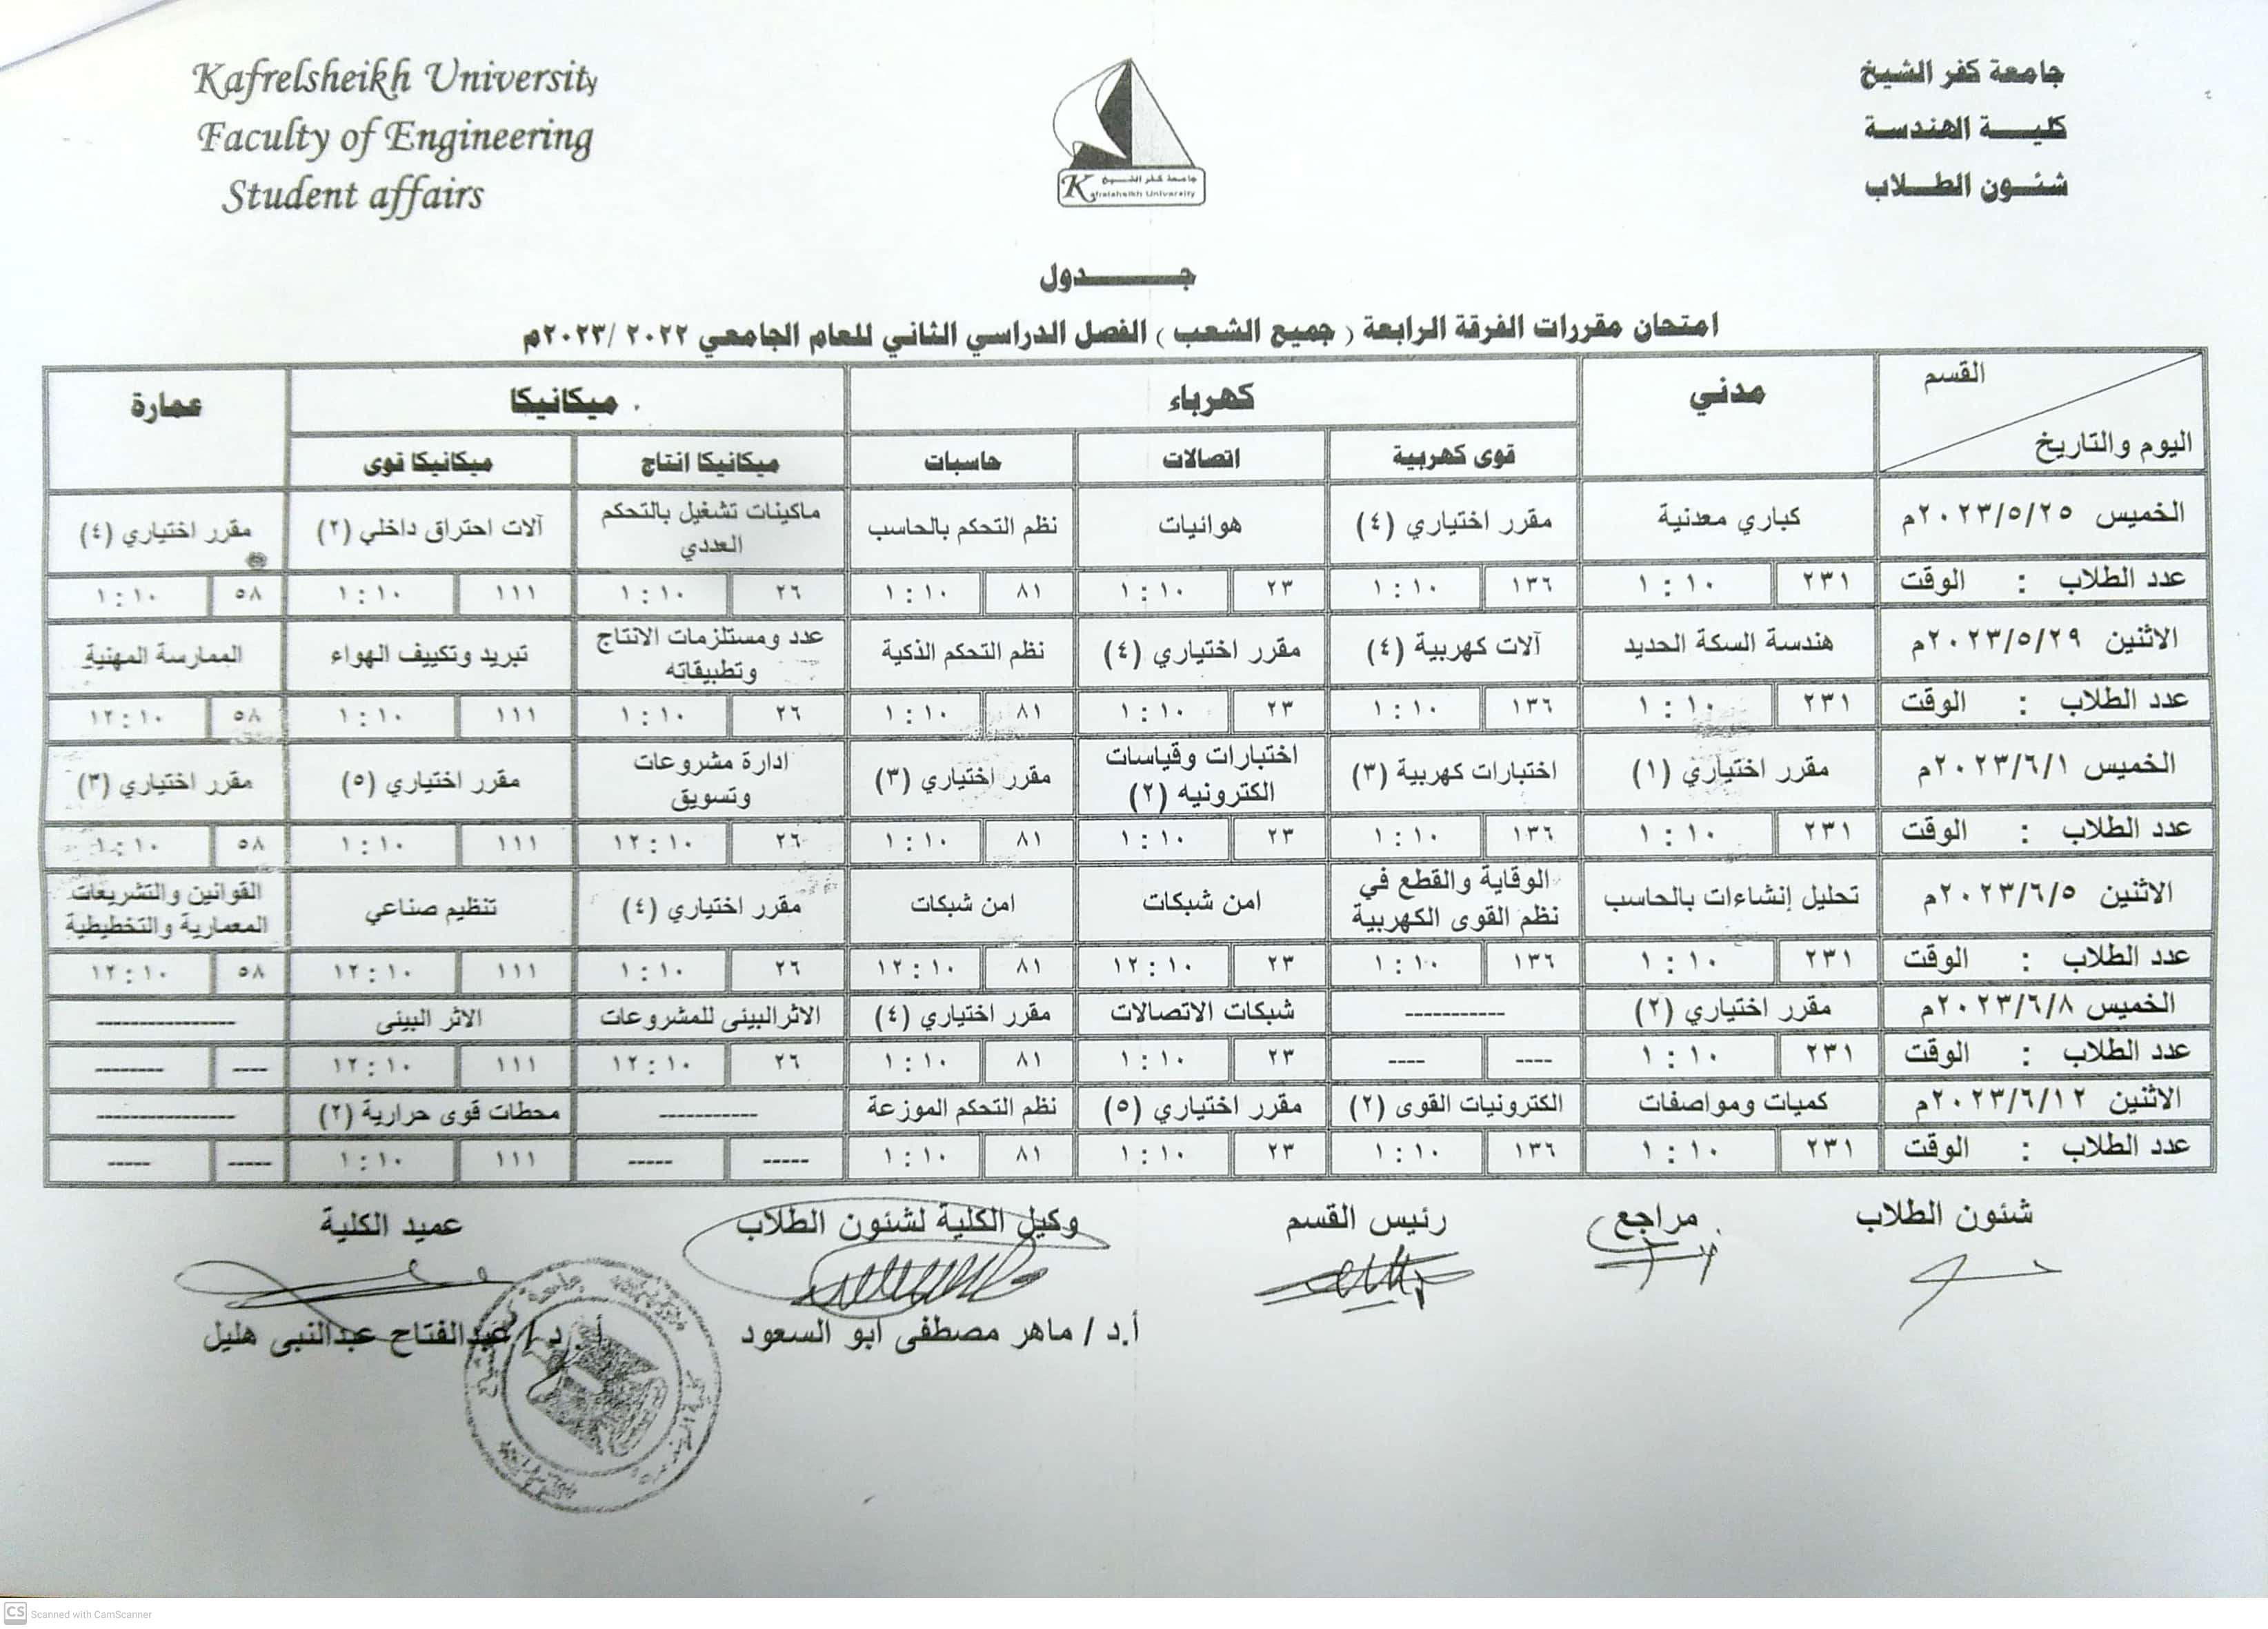 Kafrelsheikh University
Faculty of Engineering
Student affairs
جامعة كفر الشيخ
Kafrelsheikh University
جامعة كفر الشيخ
كليـــة الهندسـة
شئـون الطـلاب
جـــــــدول
امتحان مقررات الفرقة الرابعة ( جميع الشعب ) الفصل الدراسي الثاني للعام الجامعي ٢٠٢٢ /٢٠٢٣م
القسم
اليوم والتاريخ
مدني
كهرباء
ميكانيكا
عمارة
قوى كهربية
اتصالات
حاسبات
ميكانيكا انتاج
ميكانيكا قوى
الخميس ٢٠٢٣/٥/٢٥م
كباري معدنية
مقرر اختياري (٤)
هوائيات
نظم التحكم بالحاسب
ماكينات تشغيل بالتحكم
العددي
آلات احتراق داخلي (٢)
مقرر اختياري (٤)
عدد الطلاب : الوقت ٢٣١ ١ : ١٠ ١٣٦ ١ : ١٠ ٢٣ ١ : ١٠ ٨١ ١ : ١٠ ٢٦ ١ : ١٠ ١١١ ١ : ١٠ ٥٨ ١ : ١٠
الاثنين ٢٠٢٣/٥/٢٩م
هندسة السكة الحديد
آلات كهربية (٤)
مقرر اختياري (٤)
نظم التحكم الذكية
عدد ومستلزمات الانتاج
وتطبيقاته
تبريد وتكييف الهواء
الممارسة المهنية
عدد الطلاب : الوقت ٢٣١ ١ : ١٠ ١٣٦ ١ : ١٠ ٢٣ ١ : ١٠ ٨١ ١ : ١٠ ٢٦ ١ : ١٠ ١١١ ١ : ١٠ ٥٨ ١٢ : ١٠
الخميس ٢٠٢٣/٦/١م
مقرر اختياري (١)
اختبارات كهربية (٣)
اختبارات وقياسات
الكترونيه (٢)
مقرر اختياري (٣)
ادارة مشروعات
وتسويق
مقرر اختياري (٥)
مقرر اختياري (٣)
عدد الطلاب : الوقت ٢٣١ ١ : ١٠ ١٣٦ ١ : ١٠ ٢٣ ١ : ١٠ ٨١ ١ : ١٠ ٢٦ ١٢ : ١٠ ١١١ ١ : ١٠ ٥٨ ١ : ١٠
الاثنين ٢٠٢٣/٦/٥م
تحليل إنشاءات بالحاسب
الوقاية والقطع في
نظم القوى الكهربية
امن شبكات
امن شبكات
مقرر اختياري (٤)
تنظيم صناعي
القوانين والتشريعات
المعمارية والتخطيطية
عدد الطلاب : الوقت ٢٣١ ١ : ١٠ ١٣٦ ١ : ١٠ ٢٣ ١٢ : ١٠ ٨١ ١٢ : ١٠ ٢٦ ١ : ١٠ ١١١ ١٢ : ١٠ ٥٨ ١٢ : ١٠
الخميس ٢٠٢٣/٦/٨م
مقرر اختياري (٢)
-----------
شبكات الاتصالات
مقرر اختياري (٤)
الاثرالبيئى للمشروعات
الاثر البيئى
----------------
عدد الطلاب : الوقت ٢٣١ ١ : ١٠ ---- ---- ٢٣ ١ : ١٠ ٨١ ١ : ١٠ ٢٦ ١٢ : ١٠ ١١١ ١٢ : ١٠ ---- --------
الاثنين ٢٠٢٣/٦/١٢م
كميات ومواصفات
الكترونيات القوى (٢)
مقرر اختياري (٥)
نظم التحكم الموزعة
-----------
محطات قوى حرارية (٢)
----------------
عدد الطلاب : الوقت ٢٣١ ١ : ١٠ ١٣٦ ١ : ١٠ ٢٣ ١ : ١٠ ٨١ ١ : ١٠ ----- ----- ١١١ ١ : ١٠ ----- -----
شئون الطلاب
مراجع
رئيس القسم
وكيل الكلية لشئون الطلاب
عميد الكلية
أ.د / ماهر مصطفى ابو السعود
أ.د / عبدالفتاح عبدالنبى هليل
CS Scanned with CamScanner